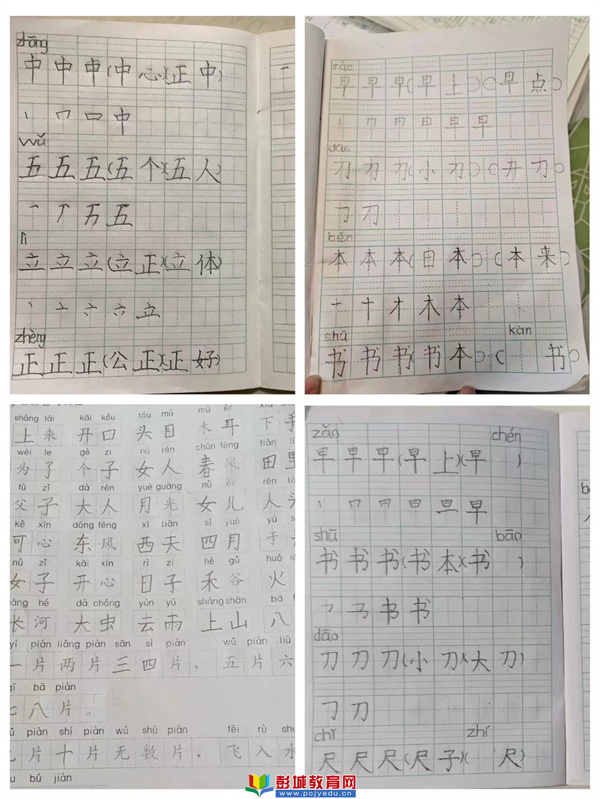 zhōng
中 中 中(中 心)(正 中)
丨 冂 口 中
wǔ
五 五 五(五 个)(五 人)
一 丆 万 五
lì
立 立 立(立 正)(立 体)
丶 亠 立
zhèng
正 正 正(公 正)(正 好)
zǎo
早 早 早(早 上)(早 点)
丨 冂 日 旦 早
dāo
刀 刀 刀(小 刀)(开 刀)
𠃌 刀
běn
本 本 本(日 本)(本 来)
一 十 才 木 本
shū kàn
书 书 书(书 本)( 书)
shàng lái kāi kǒu tóu mù mù ěr xià
上 来 开 口 头 目 木 耳 下
wèi le gè zi nǚ rén chūn fēng tián
为 了 个 子 女 人 春 风 田 里
fù zǐ dà rén yuè guāng nǚ ér rén
父 子 大 人 月 光 女 儿 人 头
kě xīn dōng fēng xī tiān sì yuè
可 心 东 风 西 天 四 月 于
nǚ zǐ kāi xīn rì zi hé gǔ huǒ
女 子 开 心 日 子 禾 谷 火
cháng hé dà chóng yún yǔ shàng shān bā
长 河 大 虫 云 雨 上 山 八
yí piàn liǎng piàn sān sì piàn wǔ piàn liù
一 片 两 片 三 四 片 , 五 片 六
qī bā piàn
七 八 片 。
piàn shí piàn wú shù piàn fēi rù shuǐ
片 十 片 无 数 片 , 飞 入 水
dōu bú jiàn
zǎo chén
早 早 早(早 上)(早 )
丨 冂 日 旦 早
shū bāo
书 书 书(书 本)(书 )
书 书
dāo
刀 刀 刀(小 刀)(大 刀)
𠃌 刀
chǐ zhí
尺 尺 尺(尺 子)( 尺)
彭城教育网
www.pcjyedu.cn